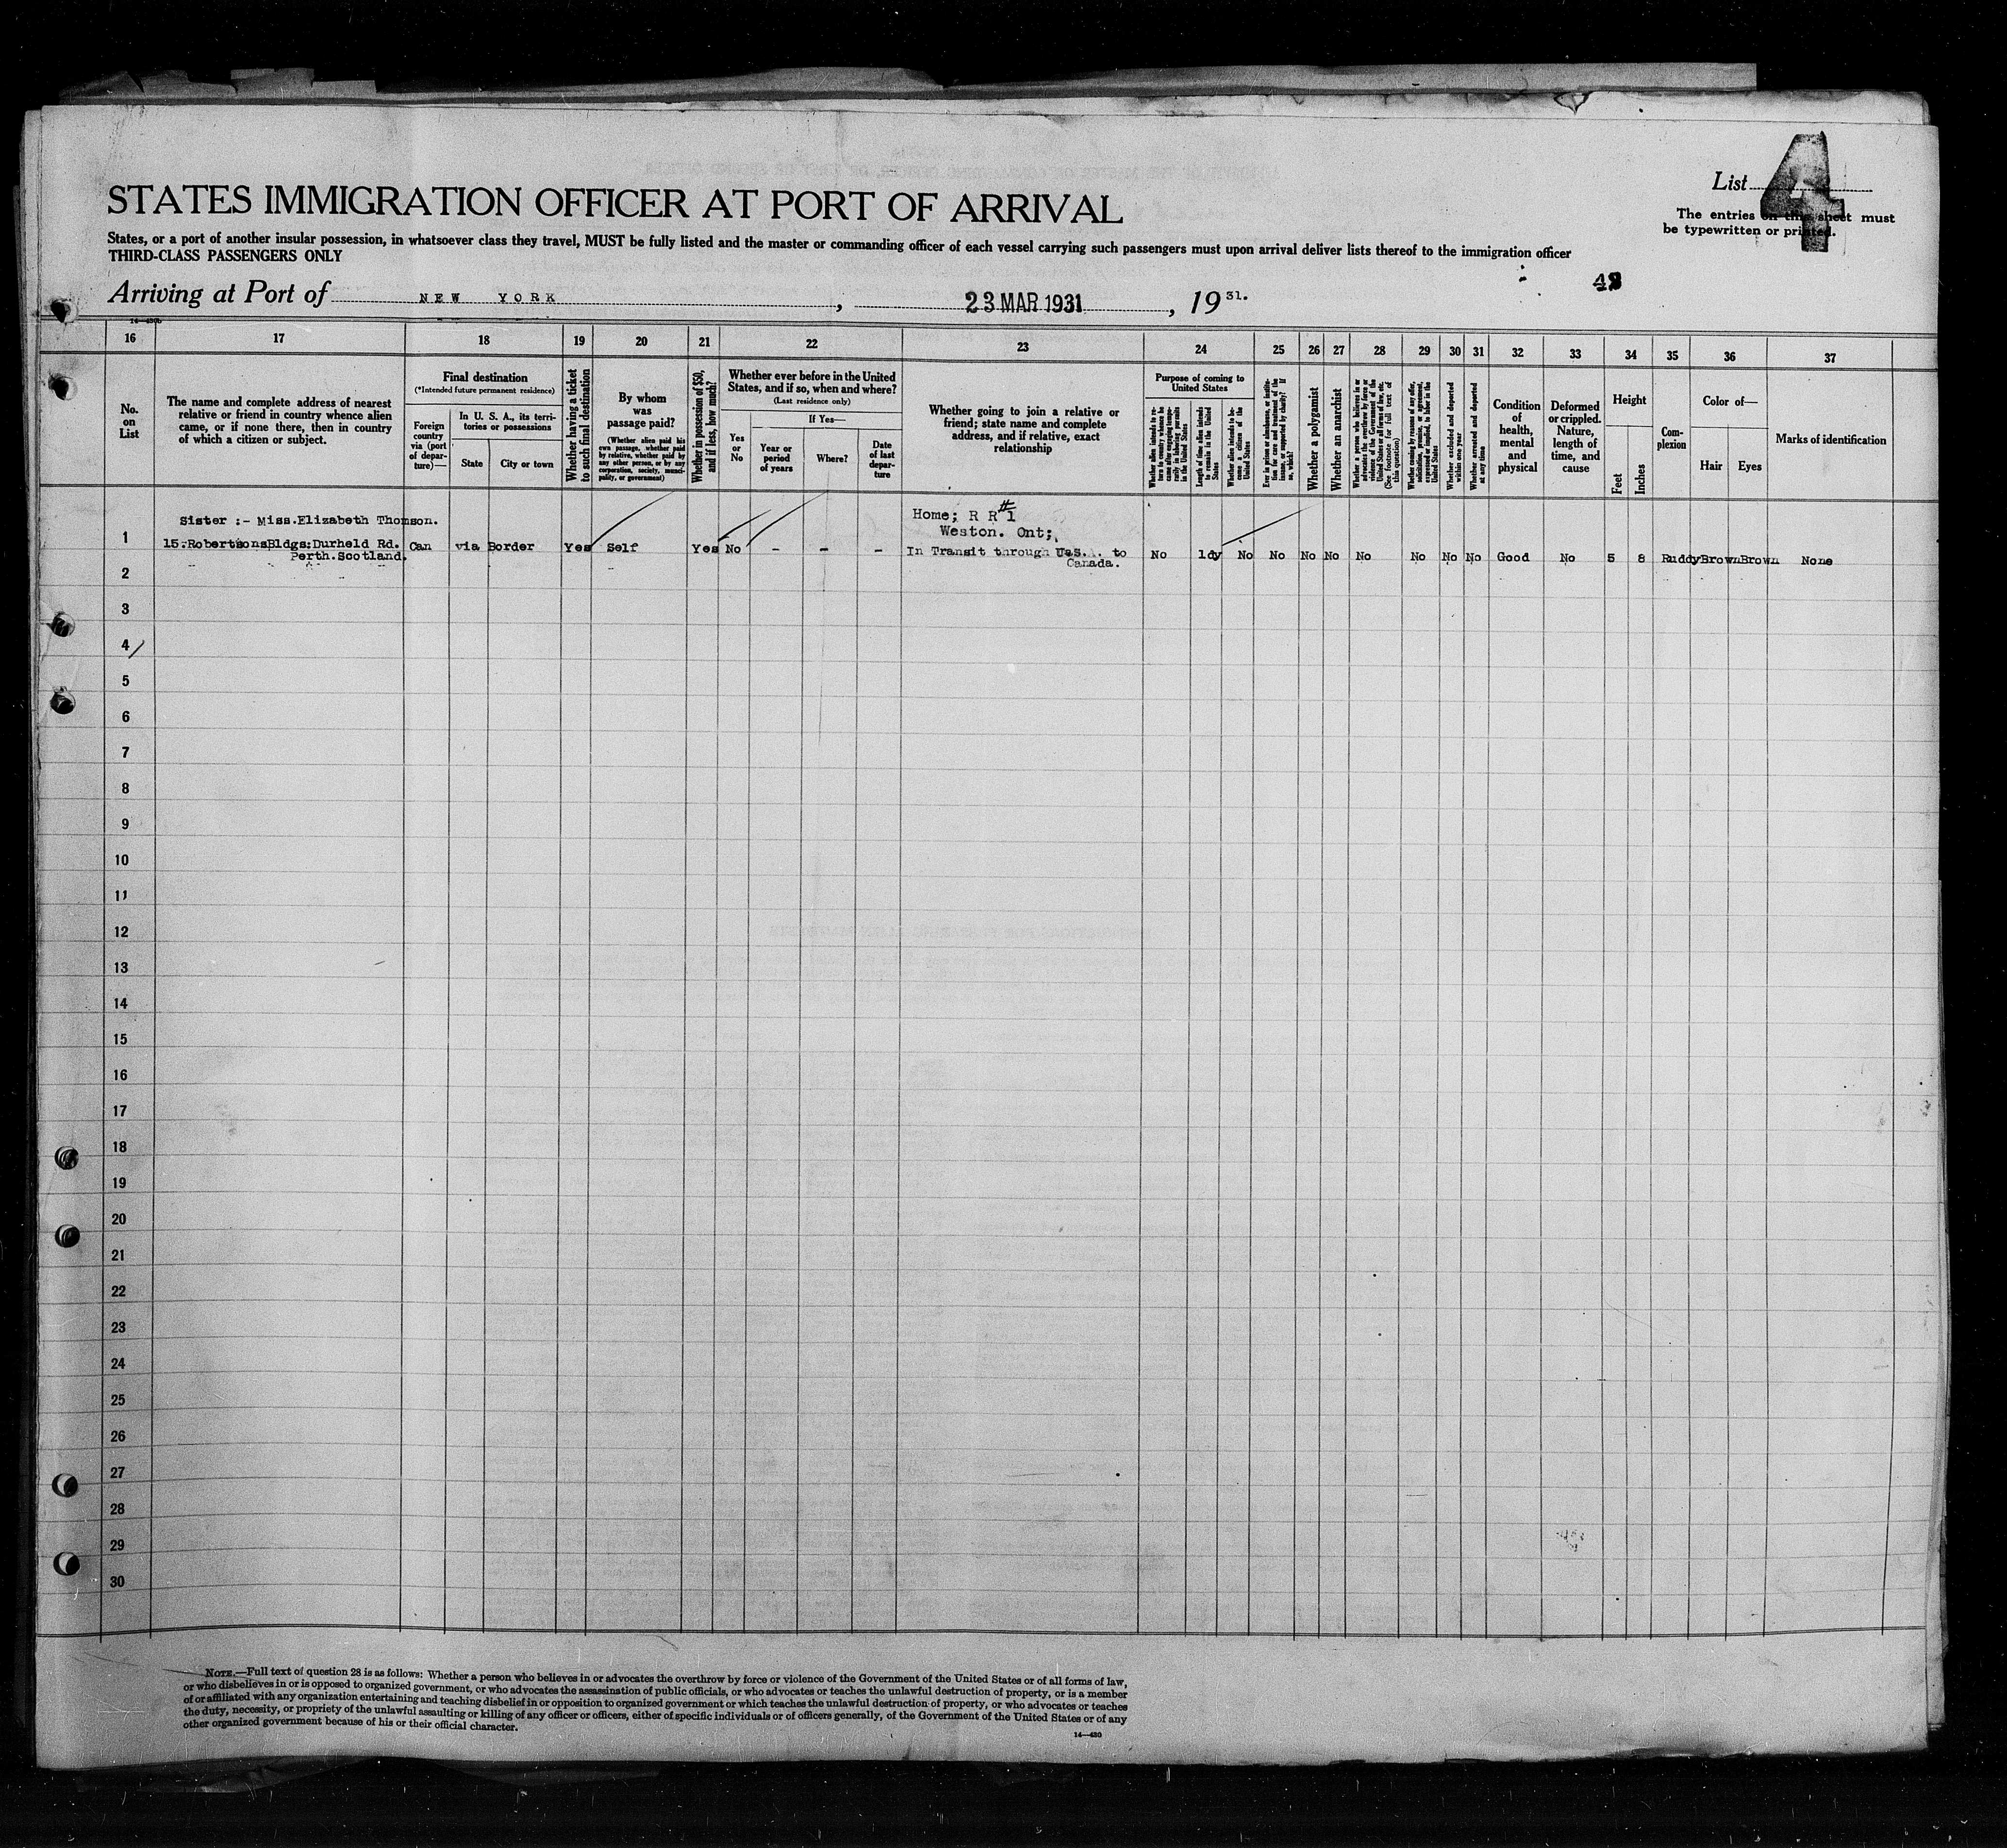 List 4
The entries on this sheet must
be typewritten or printed.
STATES IMMIGRATION OFFICER AT PORT OF ARRIVAL
States, or a port of another insular possession, in whatsoever class they travel, MUST be fully listed and the master or commanding officer of each vessel carrying such passengers must upon arrival deliver lists thereof to the immigration officer
THIRD-CLASS PASSENGERS ONLY
Arriving at Port of NEW YORK, 23 MAR 1931, 19 31.
14—430b
16 17 18 19 20 21 22 23 24 25 26 27 28 29 30 31 32 33 34 35 36 37
No.
on
List
The name and complete address of nearest
relative or friend in country whence alien
came, or if none there, then in country
of which a citizen or subject.
Final destination
(*Intended future permanent residence)
Foreign
country
via (port
of depar-
ture)—
In U. S. A., its terri-
tories or possessions
State
City or town
Whether having a ticket
to such final destination
By whom
was
passage paid?
(Whether alien paid his
own passage, whether paid
by relative, whether paid by
any other person, or by any
corporation, society, munici-
pality, or government)
Whether in possession of $50,
and if less, how much?
Whether ever before in the United
States, and if so, when and where?
(Last residence only)
Yes
or
No
If Yes—
Year or
period
of years
Where?
Date
of last
depar-
ture
Whether going to join a relative or
friend; state name and complete
address, and if relative, exact
relationship
Purpose of coming to
United States
Whether alien intends to re-
turn to country whence he
came after engaging tempo-
rarily in laboring pursuits
in the United States
Length of time alien intends
to remain in the United
States
Whether alien intends to be-
come a citizen of the
United States
Ever in prison or almshouse, or institu-
tion for care and treatment of the
insane, or supported by charity? If
so, which?
Whether a polygamist
Whether an anarchist
Whether a person who believes in or
advocates the overthrow by force or
violence of the Government of the
United States or all forms of law, etc.
(See footnote for full text of
this question)
Whether coming by reason of any offer,
solicitation, promise, or agreement,
expressed or implied, to labor in the
United States
Whether excluded and deported
within one year
Whether arrested and deported
at any time
Condition
of
health,
mental
and
physical
Deformed
or crippled.
Nature,
length of
time, and
cause
Height
Feet
Inches
Com-
plexion
Color of—
Hair
Eyes
Marks of identification
Sister :- Miss.Elizabeth Thomson.
15.RobertsonsBldgs:Durheld Rd.
Perth.Scotland.
Can via Border Yes Self Yes No - - -
Home; R R #1
Weston. Ont;
In Transit through U.S.A. to
Canada.
No 1dy No No No No No No No No Good No 5 8 Ruddy Brown Brown None
1
2
3
4
5
6
7
8
9
10
11
12
13
14
15
16
17
18
19
20
21
22
23
24
25
26
27
28
29
30
NOTE.—Full text of question 28 is as follows: Whether a person who believes in or advocates the overthrow by force or violence of the Government of the United States or of all forms of law,
or who disbelieves in or is opposed to organized government, or who advocates the assassination of public officials, or who advocates or teaches the unlawful destruction of property, or is a member
of or affiliated with any organization entertaining and teaching disbelief in or opposition to organized government or which teaches the unlawful destruction of property, or who advocates or teaches
the duty, necessity, or propriety of the unlawful assaulting or killing of any officer or officers, either of specific individuals or of officers generally, of the Government of the United States or of any
other organized government because of his or their official character.
14—430